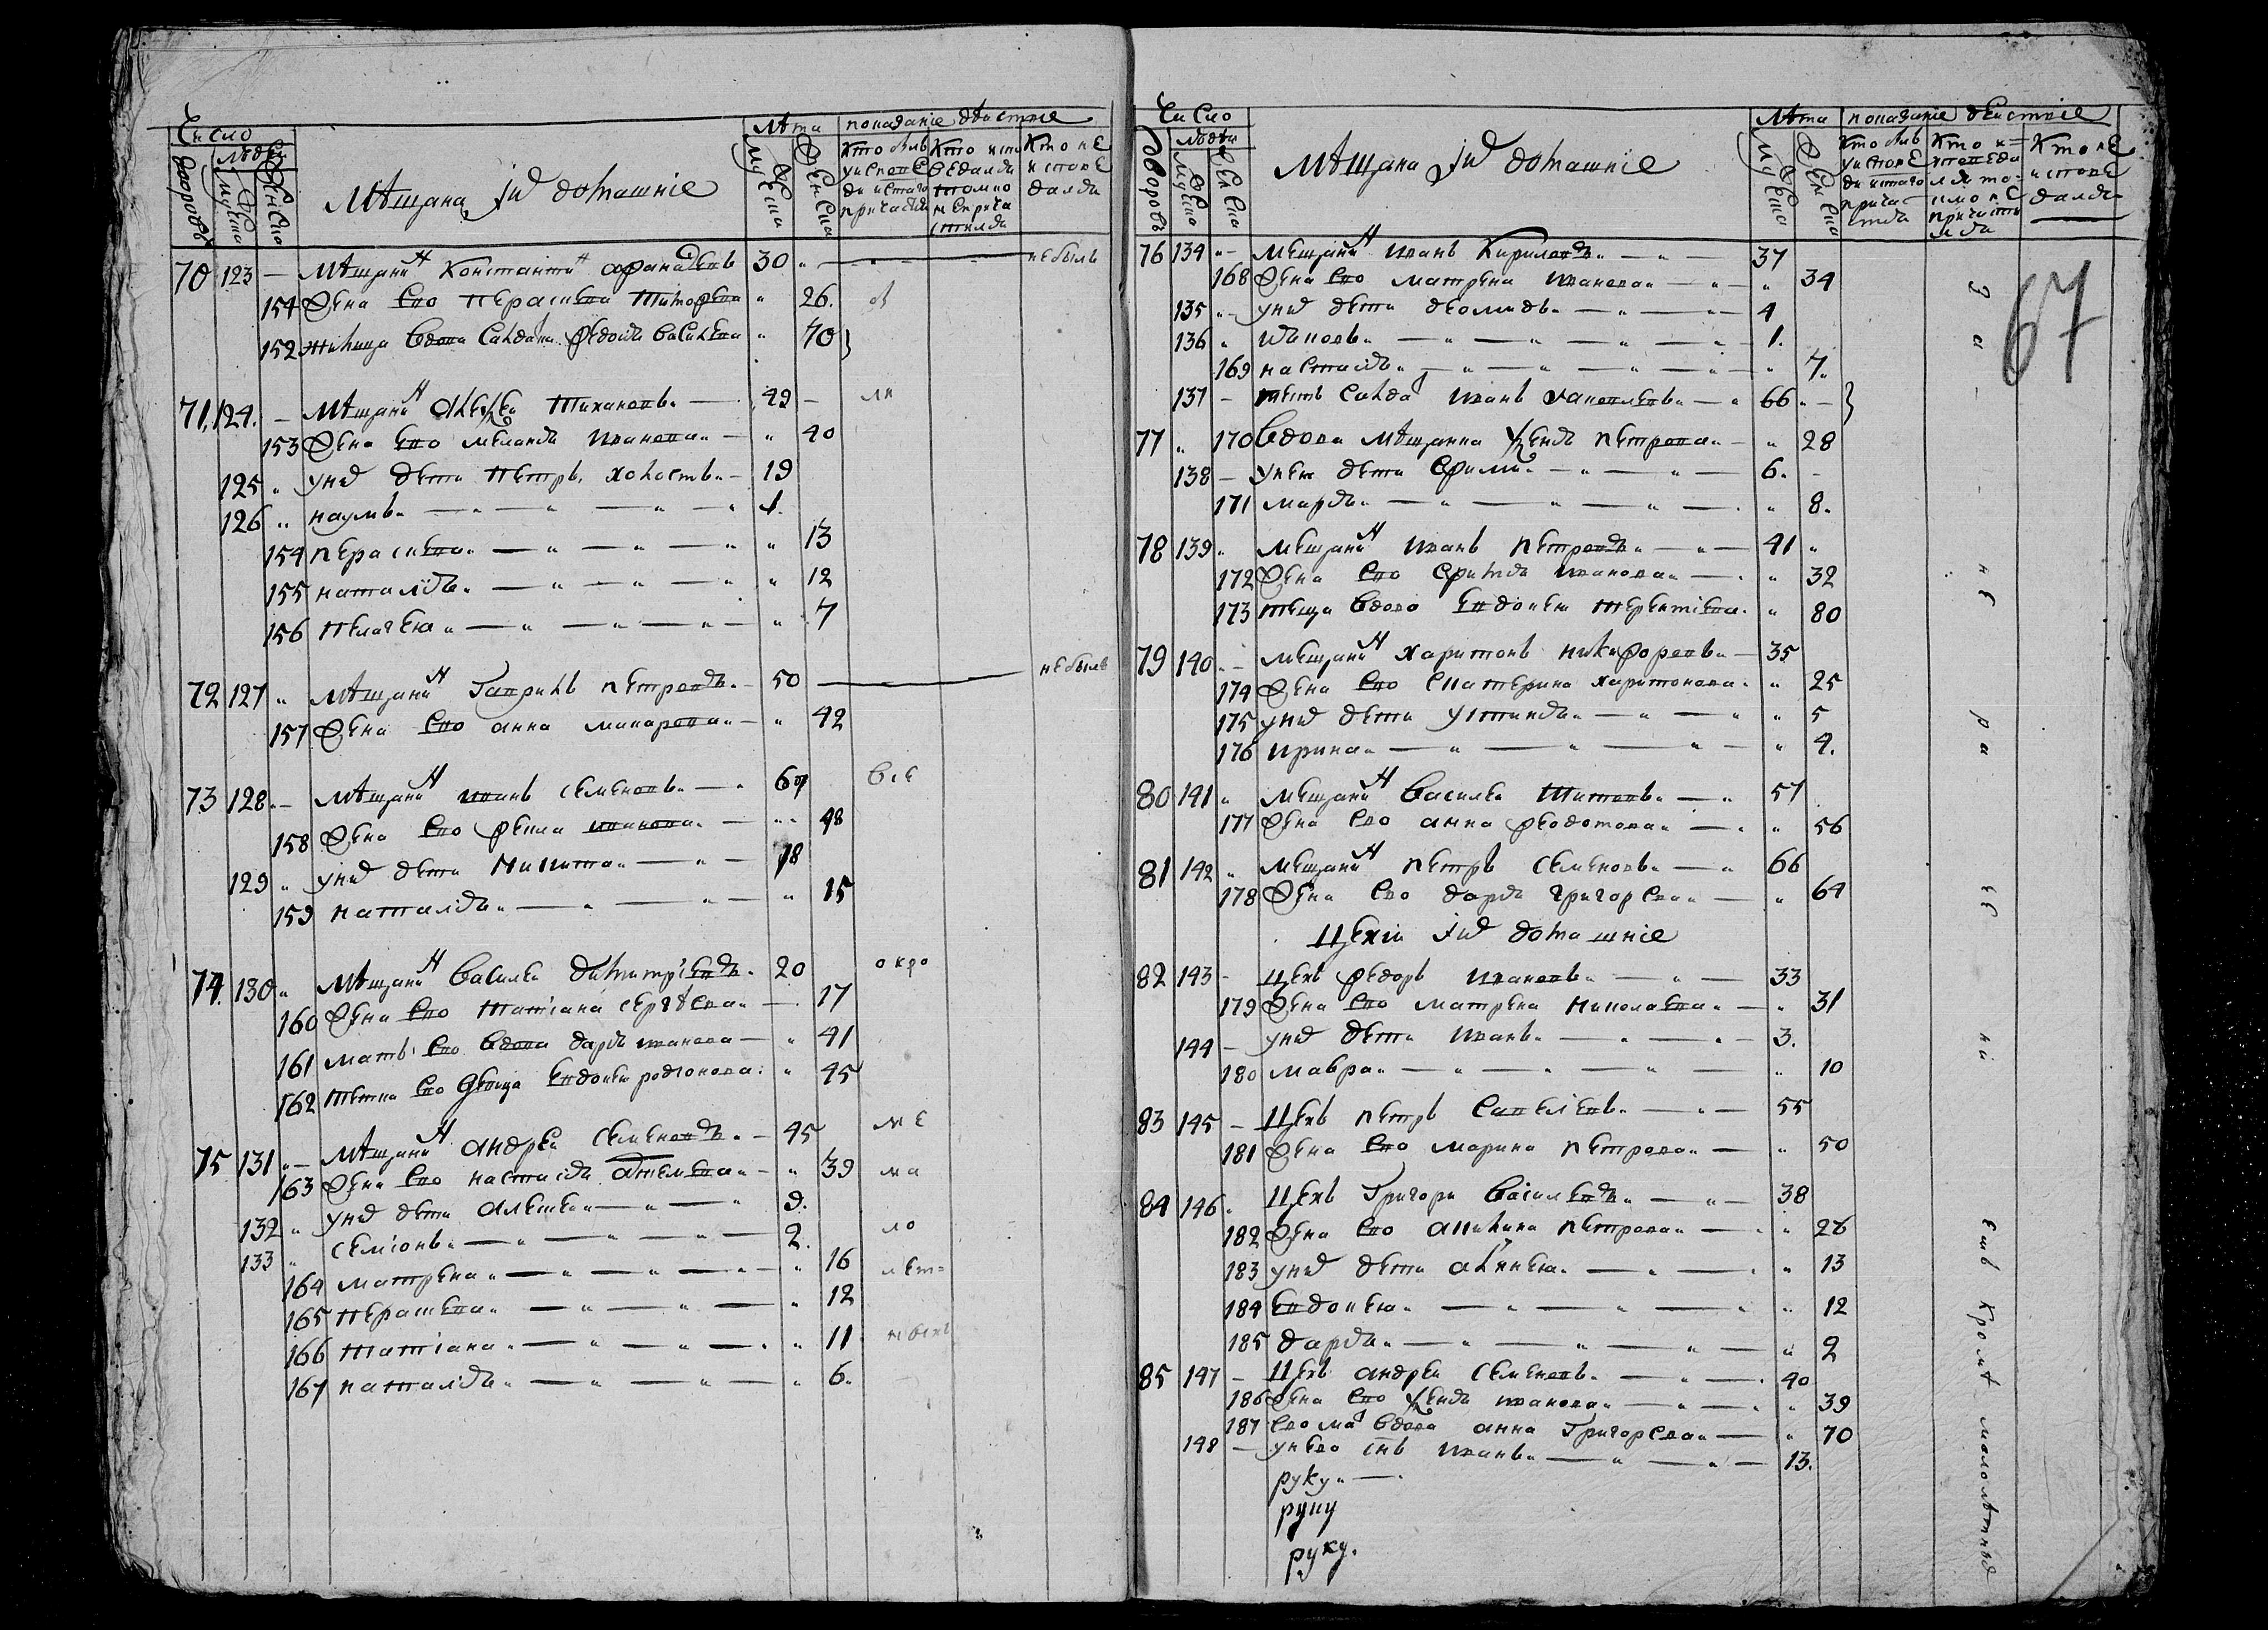 Число
Лѣта
показанїе дѣиствїе
дворовъ
людеи
мужеска
женска
Мѣщана їихъ домашнїе
мужеска
женска
Кто былъ у исповеди и святаго причастїя
Кто исповедался токмо не причастился
Кто не исповедался
70 123 — Мѣщанинъ Константинъ афанасьевъ 30 небылъ
154 Жена ево Перасковья Титорева 26.
152 жилица вдова салдатка федосья васильева 70
71. 124. — Мѣщанинъ алексеи Тихановъ. 49
153 Жена ево меланья иванова 40
125 уних дети Петръ холостъ. 19
126 наумъ. 1.
154 Парасковья. 13
155 наталїя. 12
156 Пелагея. 7
72 127 Мѣщанинъ Гаврилъ петровъ. 50 небылъ
157 Жена ево анна макарова 42
73 128. — Мѣщанинъ иванъ семеновъ. 67 все
158 Жена ево фекла иванова. 48
129 уних дети Никита 18
159 наталїя. 15
74. 130 Мѣщанинъ василеи димитрїевъ. 20 окро
160 Жена ево Татїана сергѣева 17
161 мать ево вдова дарья иванова 41
162 тетка ево девица евдокея родїонова. 45
75 131 — Мѣщанинъ андреи семеновъ. 45 ме
163 Жена ево настасїя 39 ма
132 уних дети алексеи 9. ло
133 семїонъ. 2.
164 матрена 16 лет=
165 Перасковья. 12
166 татїана. 11 нныхъ
167 наталїя. 6.
Число
Лѣта
показанїе деиствїе
дворовъ
людеи
мужеска
женска
Мѣщана їихъ домашнїе
мужеска
женска
Кто былъ у исповеди и святаго причастїя
Кто исповедался токмо не причастился
Кто не исповедался
67
76 134 — мещанинъ иванъ Кириловъ. 37
168 Жена ево матрена иванова 34
135 уних дети деомидъ. 4
136 иаковъ. 1.
169 настасїя 7.
137 — тесть салдатъ иванъ 66
77 170 вдова мѣщанка ксенья петрова 28
138 — унеи дети ефимъ. 6.
171 марья. 8.
78 139 мещанинъ иванъ петровъ 41
172 Жена ево ефимья иванова 32
173 теща вдова евдокея терентїева 80
79 140. — мещанинъ харитонъ никифоровъ 35
174 Жена ево екатерина харитонова. 25
175 уних дети устинья. 5
176 ирина 4.
80 141 мещанинъ василеи Титовъ. 57
177 Жена ево анна феодотова 56
81 142 мещанинъ петръ семеновъ. 66
178 Жена ево дарья григорева 64
Цехїи їихъ домашнїе
82 143 Цехъ федоръ ивановъ. 33
179 Жена ево матрена николаева 31
144 уних дети иванъ. 3.
180 мавра 10
83 145 — Цехъ петръ савелїевъ. 55
181 Жена ево марина петрова 50
84 146. Цехъ григори василевъ. 38
182 Жена ево акилина петрова 26
183 уних дети аксинея. 13
184 Евдокея. 12
185 дарья. 2
85 147 — Цехъ андреи семеновъ. 40
186 Жена ево ксенья иванова 39
187 ево мать вдова анна григорева 70
148 — унево снъ иванъ. 13.
руку.
руку
руку.
кромѣ малолѣтныхъ